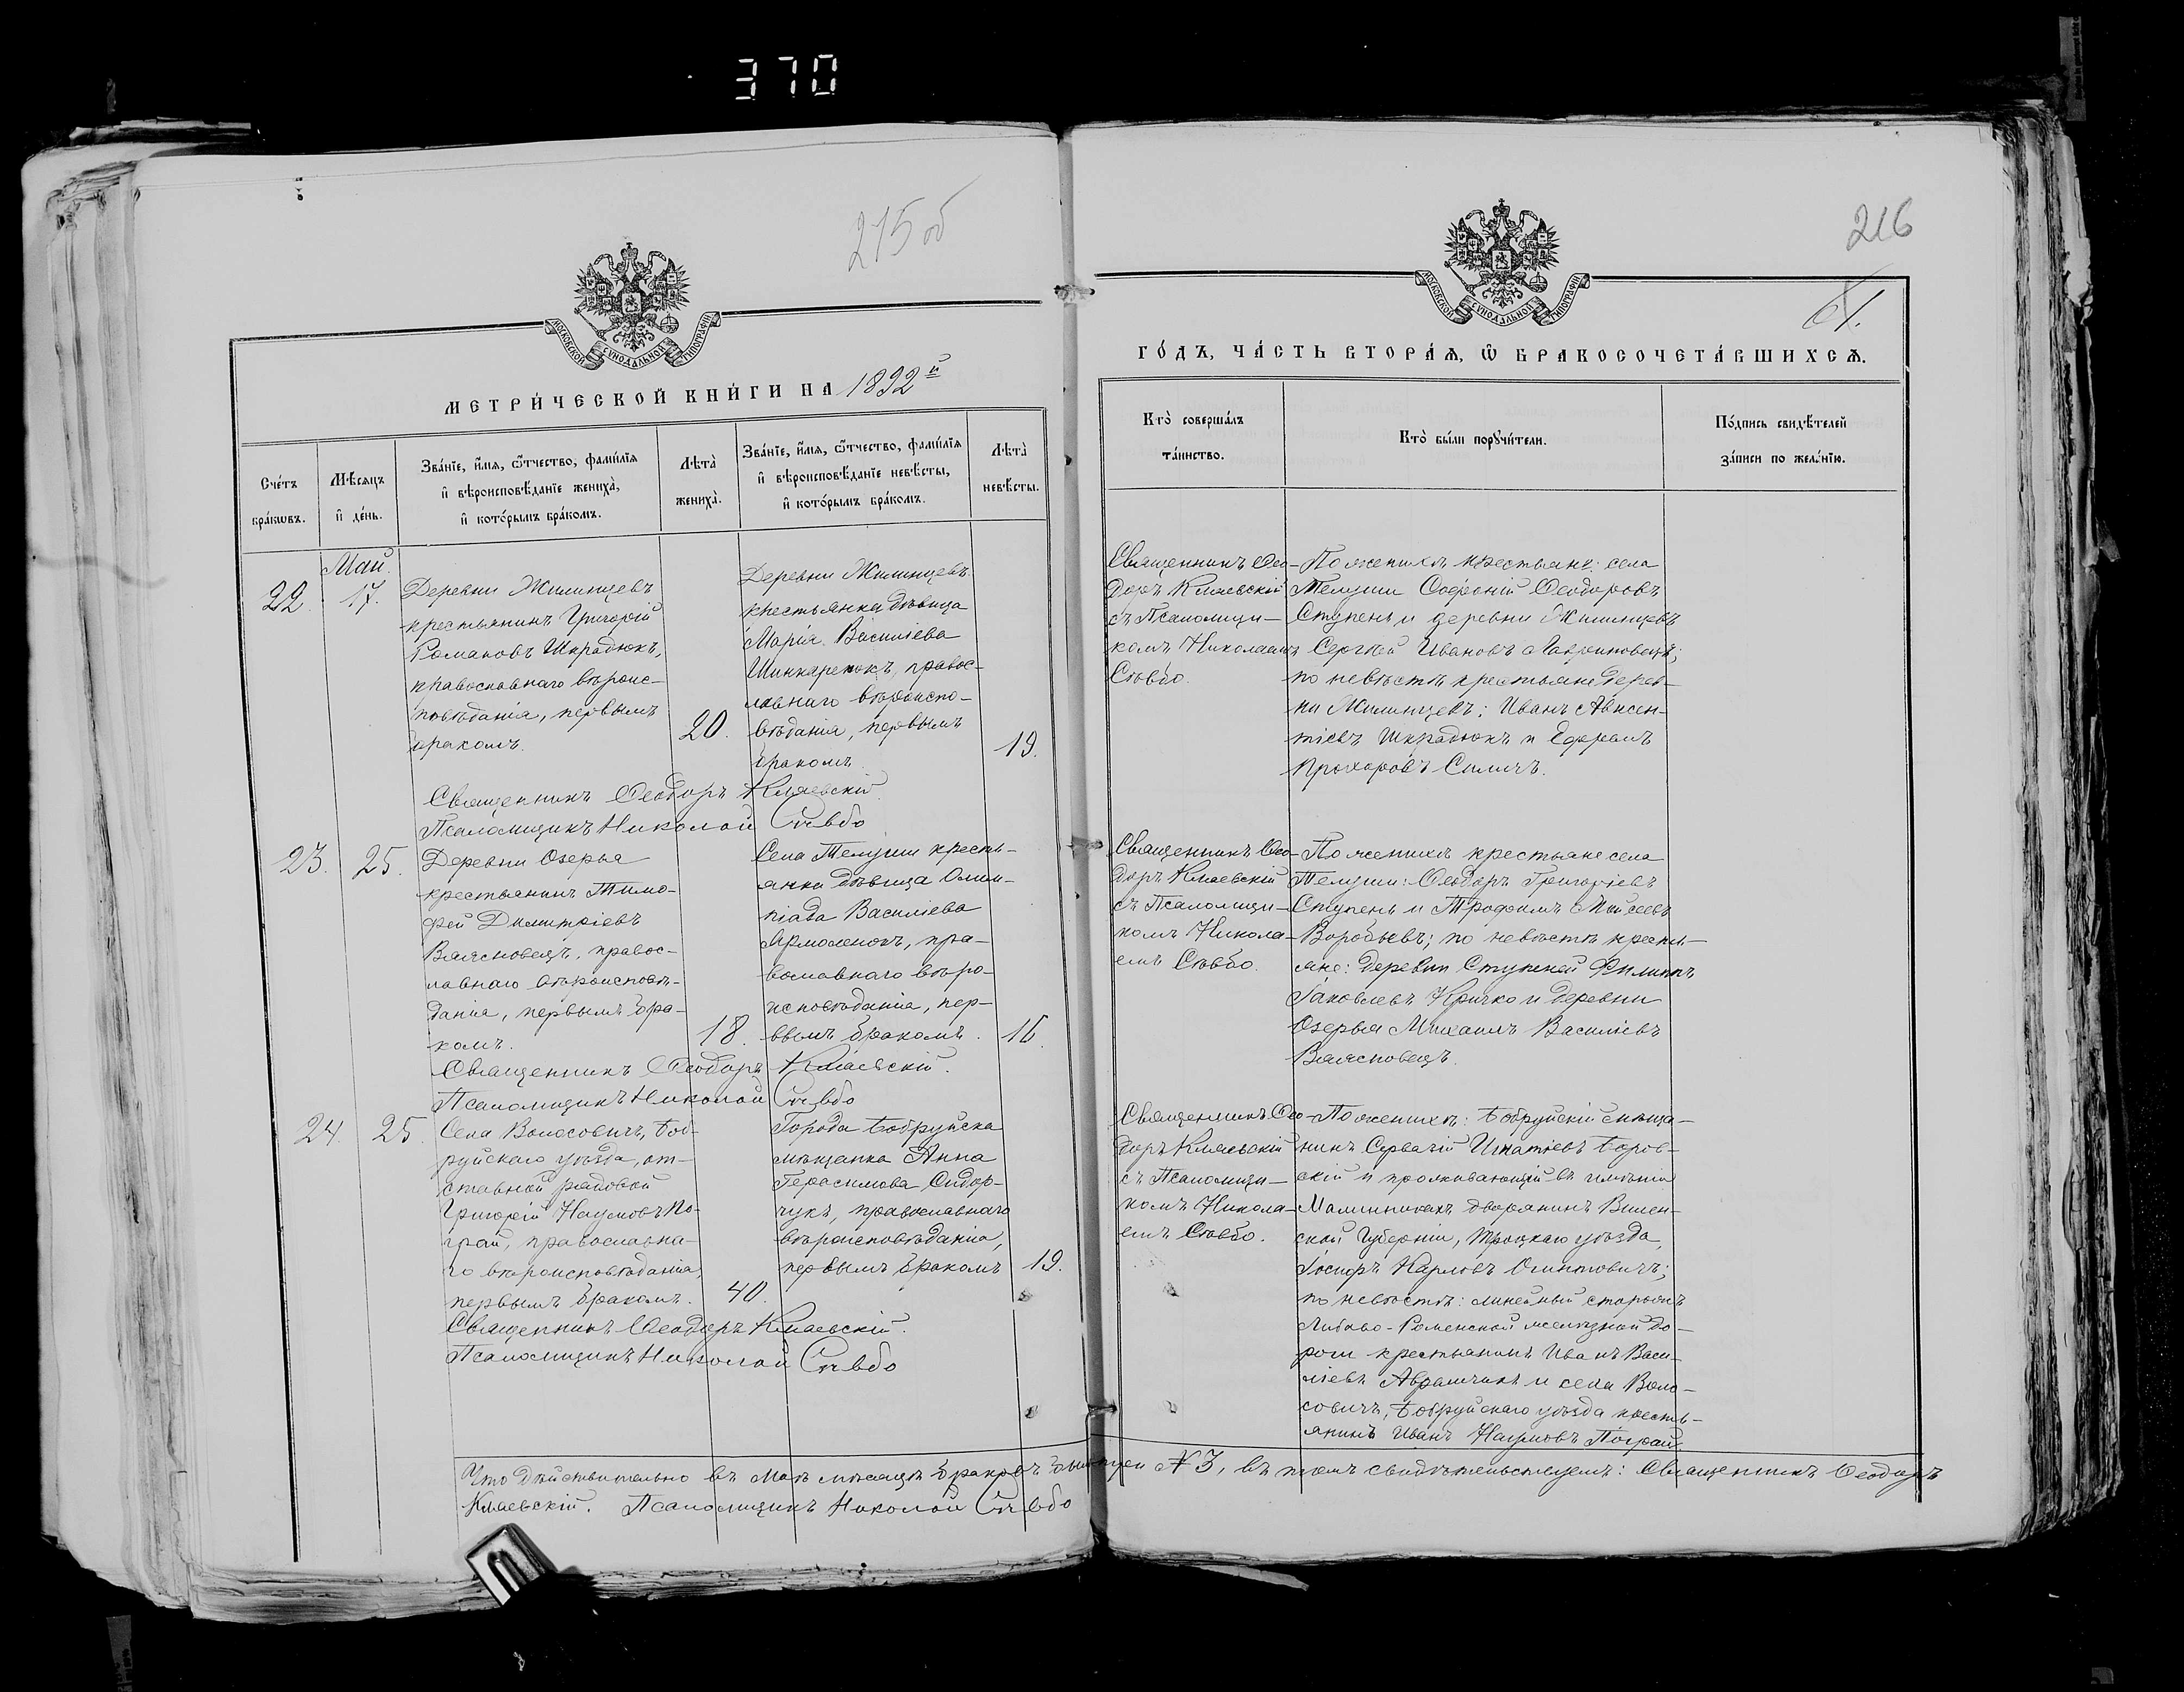 370
215 об
МОСКОВСКОЙ СѴНОДАЛЬНОЙ ТИПОГРАФІИ
МЕТРИ́ЧЕСКОЙ КНИ́ГИ НА 1892й
Сче́тъ бра́кѡвъ.
Мѣ́сяцъ и҆ де́нь.
Зва́нїе, и҆́мѧ, ѻ҆́тчество, фами́лїѧ и҆ вѣроисповѣ́данїе жениха̀, и҆ кото́рымъ бра́комъ.
Лѣта̀ жениха̀.
Зва́нїе, и҆́мѧ, ѻ҆́тчество, фами́лїѧ и҆ вѣроисповѣ́данїе невѣ́сты, и҆ кото́рымъ бра́комъ.
Лѣта̀ невѣ́сты.
Май.
22.
17.
Деревни Жилинцевъ
крестьянинъ Григорій
Романовъ Шкрадюкъ,
православнаго вѣроис-
повѣданія, первымъ
бракомъ.
20.
Деревни Жилинцевъ
крестьянка дѣвица
Марія Василіева
Шинкаренокъ, правос-
лавнаго вѣроиспо-
вѣданія, первымъ
бракомъ.
19.
Священникъ Ѳеодоръ Кляевскій
Псаломщикъ Николай Сѣвбо
23.
25.
Деревни Озерья
крестьянинъ Тимо-
фей Димитріевъ
Валясновецъ, правос-
лавнаго вѣроисповѣ-
данія, первымъ бра-
комъ.
18.
Села Телуши кресть-
янка дѣвица Олим-
піада Василіева
Ярмоленокъ, пра-
вославнаго вѣро-
исповѣданія, пер-
вымъ бракомъ.
16.
Священникъ Ѳеодоръ Кляевскій.
Псаломщикъ Николай Сѣвбо
24.
25.
Села Волосовичъ, Боб-
руйскаго уѣзда, от-
ставной рядовой
Григорій Наумовъ По-
грай, православна-
го вѣроисповѣданія,
первымъ бракомъ.
40.
Города Бобруйска
мѣщанка Анна
Герасимова Сидор-
чукъ, православнаго
вѣроисповѣданія,
первымъ бракомъ
19.
Священникъ Ѳеодоръ Кляевскій.
Псаломщикъ Николай Сѣвбо
216
61.
МОСКОВСКОЙ СѴНОДАЛЬНОЙ ТИПОГРАФІИ
ГО́ДЪ, ЧА́СТЬ ВТОРА́Ѧ, Ѡ҆ БРАКОСОЧЕТА́ВШИХСѦ.
Кто̀ соверша́лъ та́инство.
Кто̀ бы́ли порꙋчи́тели.
По́дпись свидѣ́телей за́писи по жела́нїю.
Священникъ Ѳео-
доръ Кляевскій
съ Псаломщи-
комъ Николаемъ
Сѣвбо.
По женихѣ крестьяне: села
Телуши Софроній Ѳеодоровъ
Ступень и деревни Жилинцевъ
Сергѣй Ивановъ;
по невѣстѣ крестьяне дерев-
ни Жилинцевъ: Иванъ Авксен-
тіевъ Шкрадюкъ и Ефремъ
Прохоровъ Силичъ.
Священникъ Ѳео-
доръ Кляевскій
съ Псаломщи-
комъ Никола-
емъ Сѣвбо.
По женихѣ крестьяне села
Телуши: Ѳеодоръ Григоріевъ
Ступень и Трофимъ Моѵсеевъ
Воробьевъ; по невѣстѣ кресть-
яне: деревни Ступеней Филиппъ
Іаковлевъ Кричко и деревни
Озерья Михаилъ Василіевъ
Валясновецъ.
Священникъ Ѳео-
доръ Кляевскій
съ Псаломщи-
комъ Никола-
емъ Сѣвбо.
По женихѣ: Бобруйскій мѣща-
нинъ Сервацій Игнатіевъ Боров-
скій и проживающій въ имѣніи
Малинникахъ дворянинъ Вилен-
ской Губерніи, Троцкаго уѣзда,
Іосифъ Карловъ;
по невѣстѣ: линейный сторожъ
Либаво-Роменской желѣзной до-
роги крестьянинъ Иванъ Васи-
ліевъ Аврамчикъ и села Воло-
совичъ, Бобруйскаго уѣзда кресть-
янинъ Иванъ Наумовъ Пограй
Что дѣйствительно въ Маѣ мѣсяцѣ браковъ № 3, въ томъ свидѣтельствуемъ: Священникъ Ѳеодоръ
Кляевскій. Псаломщикъ Николай Сѣвбо